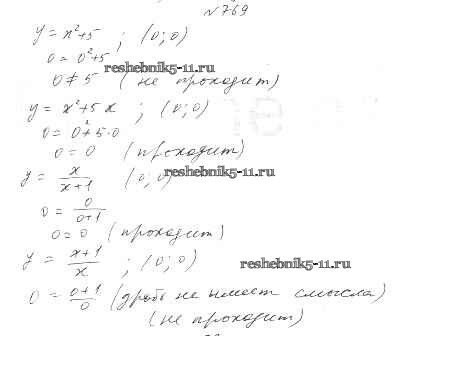 №769
y = x²+5 ; (0;0)
0 = 0²+5
reshebnik5-11.ru
0 ≠ 5 (не проходит)
y = x²+5x ; (0;0)
0 = 0²+5·0
0 = 0 (проходит)
y = x/(x+1) (0;0)
reshebnik5-11.ru
0 = 0/(0+1)
0 = 0 (проходит)
y = (x+1)/x ; (0;0)
reshebnik5-11.ru
0 = (0+1)/0 (дробь не имеет смысла)
(не проходит)